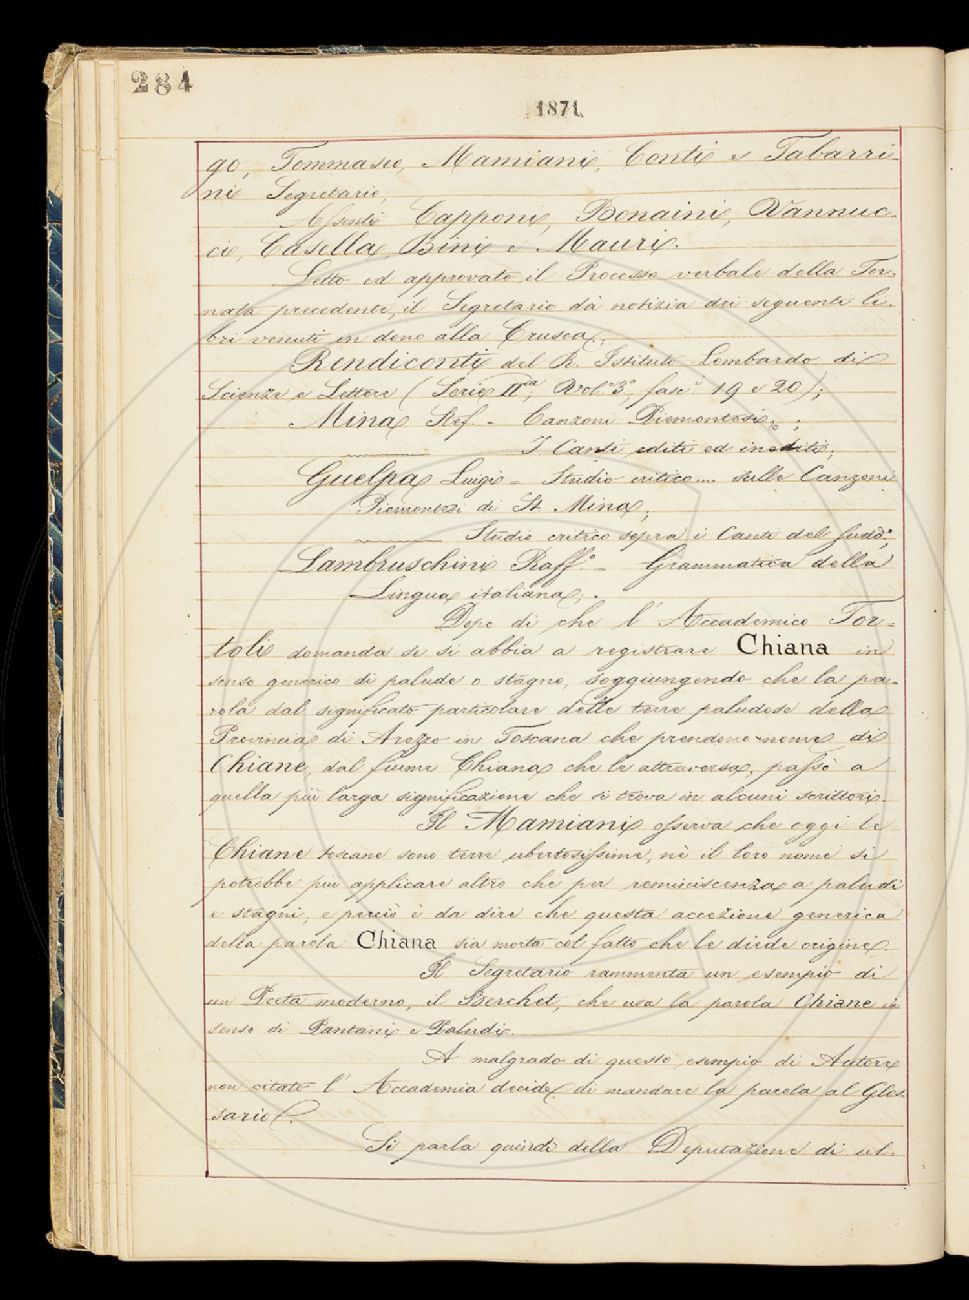 284
1871.
go, Tommaseo, Mamiani, Conti e Tabarri-
ni Segretario,
Assenti Capponi, Bonaini, Vannuc-
ci, Casella, Bini e Mauri.
Letto ed approvato il Processo verbale della Tor-
nata precedente, il Segretario dà notizia dei seguenti li-
bri venuti in dono alla Crusca:
Rendiconti del R. Istituto Lombardo di
Scienze e Lettere (Serie IIª, Vol.º 3º fasc.i 19 e 20);
Mina Stef. - Canzoni Piemontesi;
I Canti editi ed inediti;
Guelpa Luigi - Studio critico.... sulle Canzoni
Piemontesi di St. Mina;
Studio critico sopra i Canti del sudd.º;
Lambruschini Raff.º - Grammatica della
Lingua italiana.
Dopo di che l' Accademico Tor-
toli domanda se si abbia a registrare Chiana in
senso generico di palude o stagno, soggiungendo che la pa-
rola dal significato particolare delle terre paludose della
Provincia di Arezzo in Toscana che prendono nome di
Chiane, dal fiume Chiana che le attraversa, passò a
quella più larga significazione che si trova in alcuni scrittori.
Il Mamiani osserva che oggi le
Chiane toscane sono terre ubertosissime, nè il loro nome si
potrebbe più applicare altro che per reminiscenza a paludi
e stagni, e perciò è da dire che questa accezione generica
della parola Chiana sia morta col fatto che le diede origine.
Il Segretario rammenta un esempio di
un Poeta moderno, il Berchet, che usa la parola Chiane in
senso di Pantani e Paludi.
A malgrado di questo esempio di Autore
non citato l' Accademia decide di mandare la parola al Glos-
sario.
Si parla quindi della Deputazione di ul-